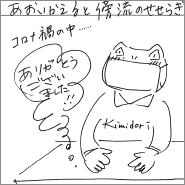 あおいかえると傍流のせせらぎ
コロナ禍の中……
ありがとう
ございい
ました
Kimidori